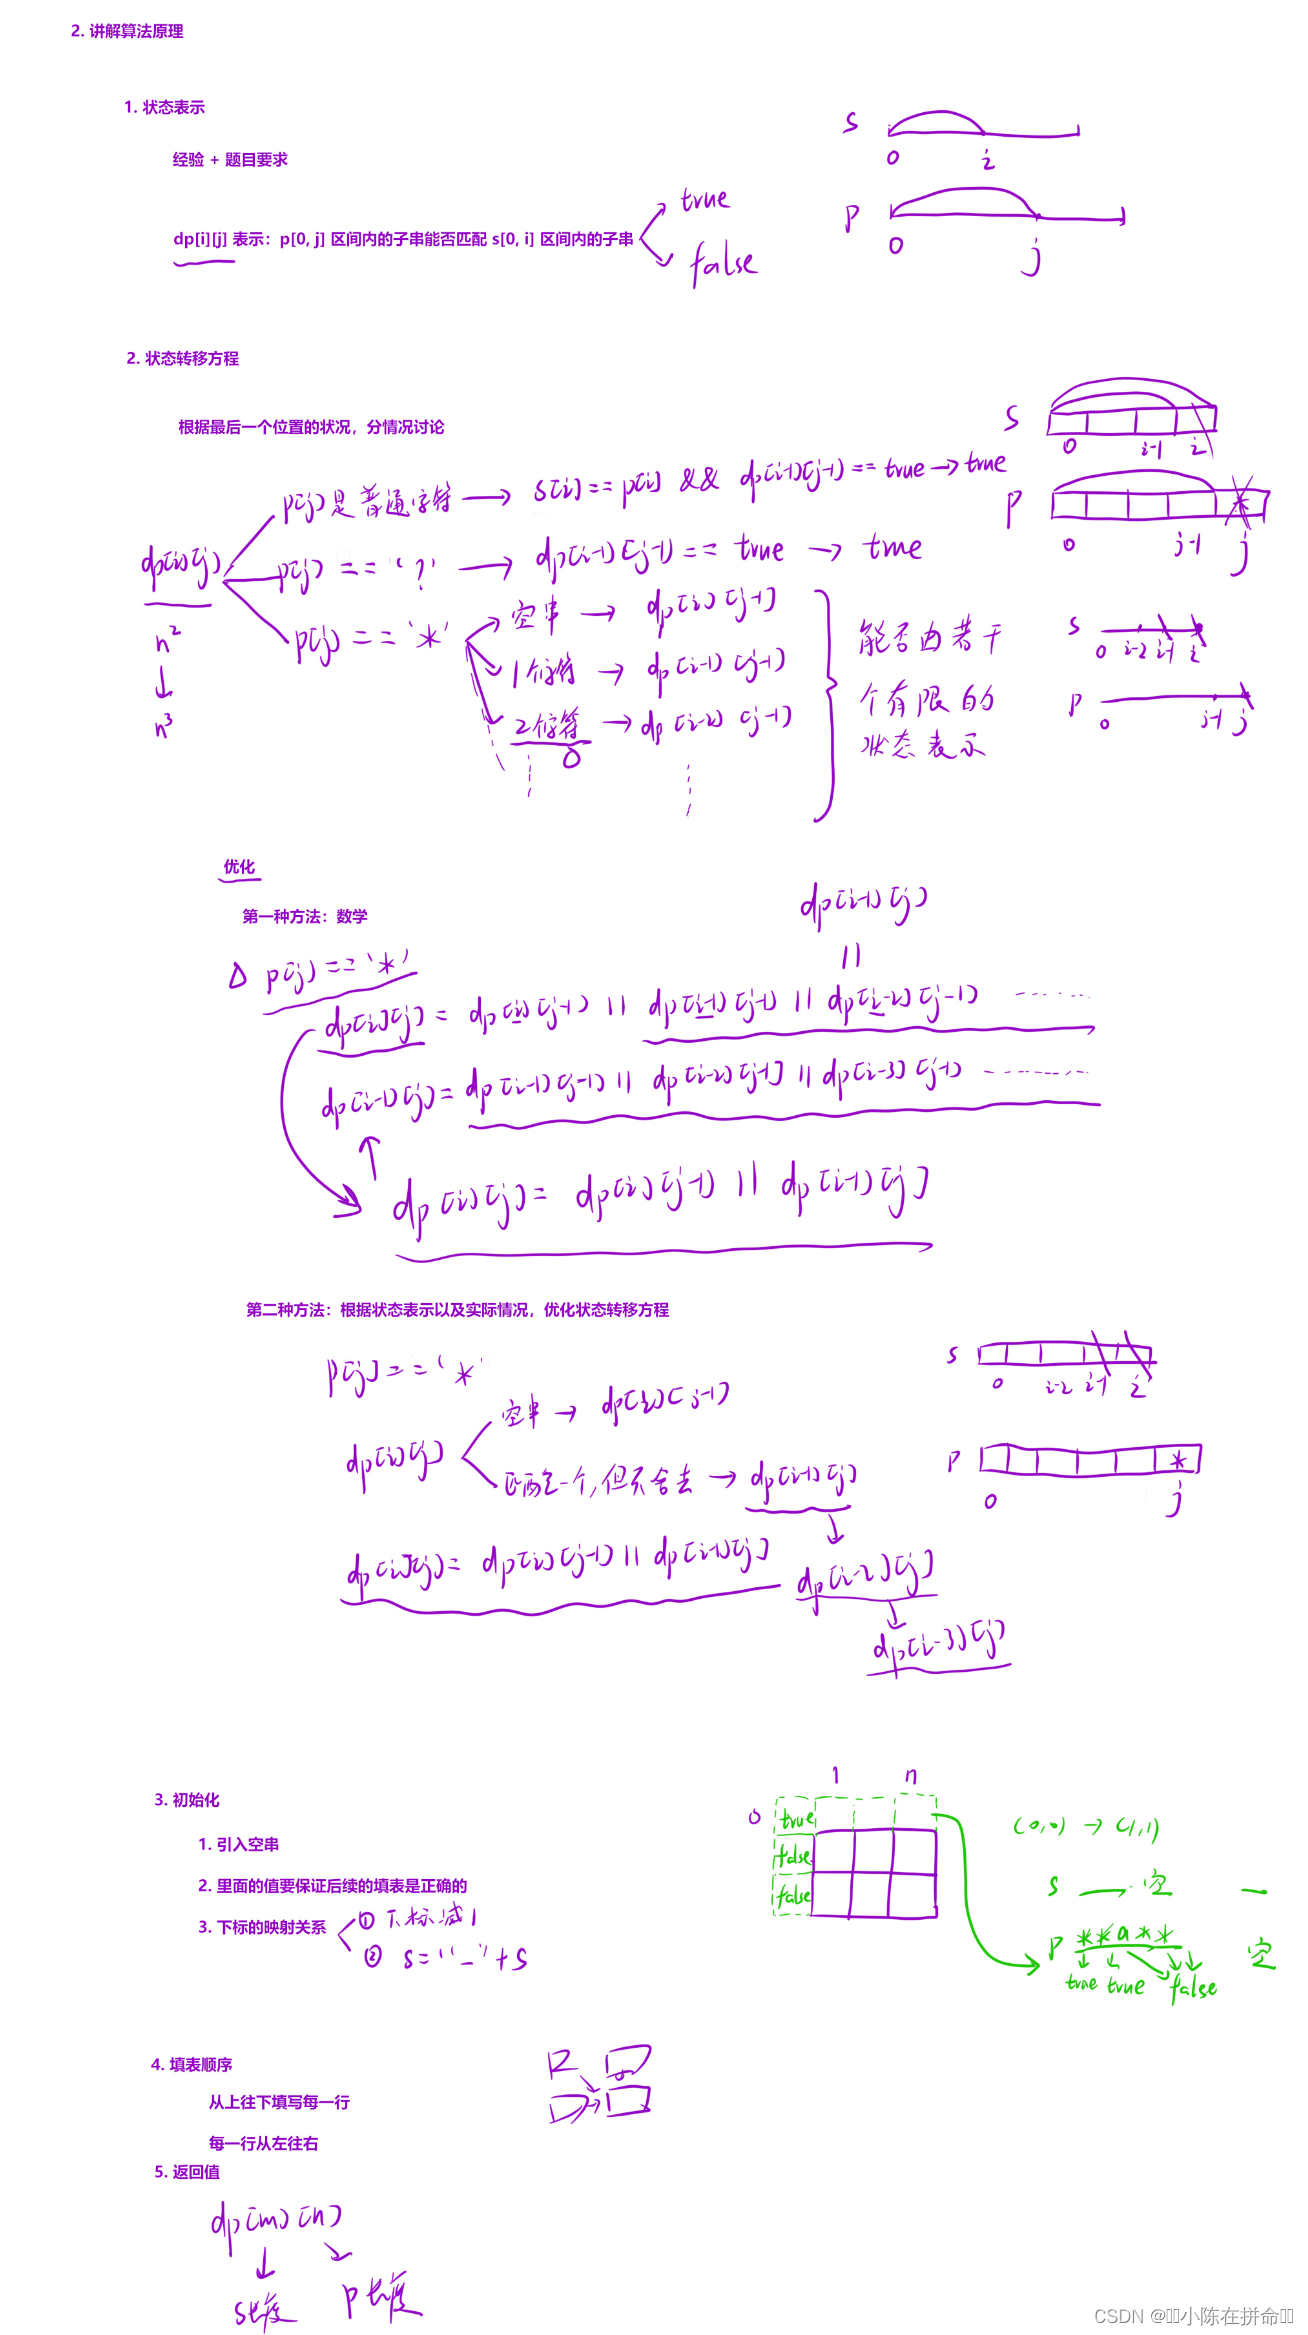 2. 讲解算法原理
1. 状态表示
经验 + 题目要求
dp[i][j] 表示：p[0, j] 区间内的子串能否匹配 s[0, i] 区间内的子串
true
false
s
0 i
p
0 j
2. 状态转移方程
根据最后一个位置的状况，分情况讨论
dp[i][j]
n²
n³
p[j] 是普通字符 → s[i] == p[j] && dp[i-1][j-1] == true → true
p[j] == '?' → dp[i-1][j-1] == true → true
p[j] == '*'
空串 → dp[i][j-1]
1个字符 → dp[i-1][j-1]
2个字符 → dp[i-2][j-1]
能否由若干
个有限的
状态表示
s
0 i-1 i
p *
0 j-1 j
s
0 i-2 i-1 i
p
0 j-1 j
优化
第一种方法：数学
dp[i-1][j]
||
△ p[j] == '*'
dp[i][j] = dp[i][j-1] || dp[i-1][j-1] || dp[i-2][j-1] ......
dp[i-1][j] = dp[i-1][j-1] || dp[i-2][j-1] || dp[i-3][j-1] ......
dp[i][j] = dp[i][j-1] || dp[i-1][j]
第二种方法：根据状态表示以及实际情况，优化状态转移方程
p[j] == '*'
dp[i][j]
空串 → dp[i][j-1]
匹配一个，但不舍去 → dp[i-1][j]
dp[i][j] = dp[i][j-1] || dp[i-1][j]
dp[i-2][j]
dp[i-3][j]
s
0 i-2 i-1 i
p *
0 j
3. 初始化
1. 引入空串
2. 里面的值要保证后续的填表是正确的
3. 下标的映射关系
① 下标减1
② s = "_" + s
1 n
0 true
false
false
(0,0) → (1,1)
s 空
p **a**
空
true true false
4. 填表顺序
从上往下填写每一行
每一行从左往右
5. 返回值
dp[m][n]
s长度 p长度